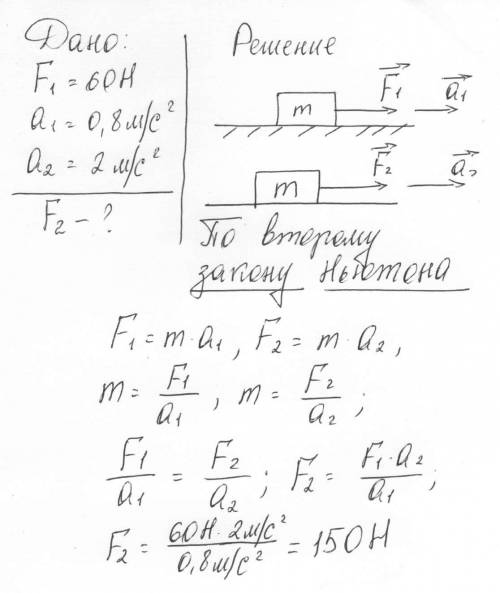 Дано:
F₁ = 60Н
a₁ = 0,8м/с²
a₂ = 2м/с²
F₂ - ?
Решение
m F₁ a₁
m F₂ a₂
По второму
закону Ньютона
F₁ = m·a₁, F₂ = m·a₂,
m = F₁/a₁, m = F₂/a₂;
F₁/a₁ = F₂/a₂; F₂ = F₁·a₂/a₁;
F₂ = 60Н·2м/с²/0,8м/с² = 150Н